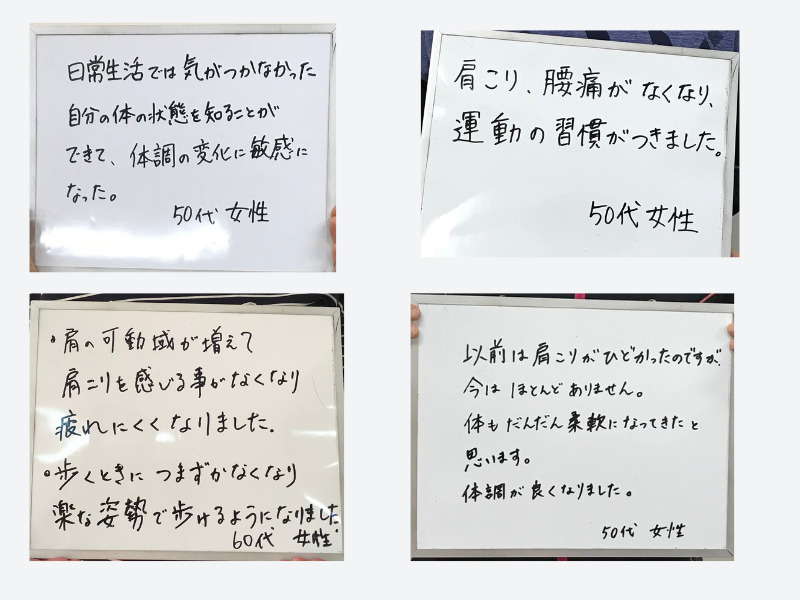 日常生活では気がつかなかった
自分の体の状態を知ることが
できて、体調の変化に敏感に
なった。
50代 女性
肩こり、腰痛がなくなり、
運動の習慣がつきました。
50代 女性
・肩の可動域が増えて
肩こりを感じる事がなくなり
疲れにくくなりました.
・歩くときにつまずかなくなり
楽な姿勢で歩けるようになりました.
60代 女性
以前は肩こりがひどかったのですが、
今はほとんどありません。
体もだんだん柔軟になってきたと
思います。
体調が良くなりました。
50代 女性